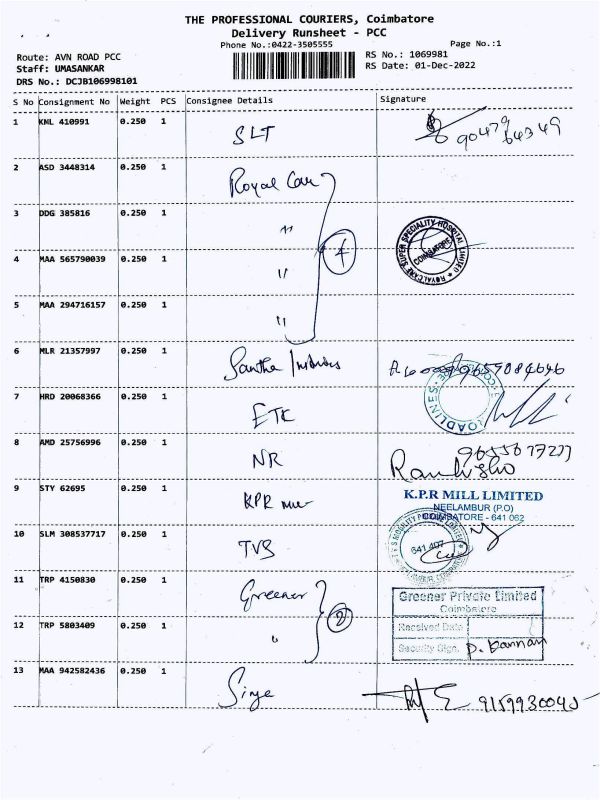 THE PROFESSIONAL COURIERS, Coimbatore
Delivery Runsheet - PCC
Phone No.:0422-3505555
Page No.:1
Route: AVN ROAD PCC
RS No.: 1069981
Staff: UMASANKAR
RS Date: 01-Dec-2022
DRS No.: DCJB106998101
S No Consignment No Weight PCS Consignee Details Signature
1 KML 410991 0.250 1 SLT 90479
64349
2 ASD 3448314 0.250 1 Royal Car
3 DDG 385816 0.250 1 "
ROYALCARE SUPER SPECIALITY HOSPITAL LIMITED
COIMBATORE
4 MAA 565790039 0.250 1 " 4
5 MAA 294716157 0.250 1 "
6 MLR 21357997 0.250 1 Santha 9659084646
7 HRD 20068366 0.250 1 ETK
ROADLINES
8 AMD 25756996 0.250 1 NR
9 STY 62695 0.250 1 KPR Mill
K.P.R MILL LIMITED
NEELAMBUR (P.O)
COIMBATORE - 641 062
10 SLM 308537717 0.250 1 TVS
TVS MOBILITY PRIVATE LIMITED
641 407
11 TRP 4150830 0.250 1 Greener
Greener Private Limited
Coimbatore
12 TRP 5803409 0.250 1 " 2
Received Date
Security Sign. D. Kannan
13 MAA 942582436 0.250 1